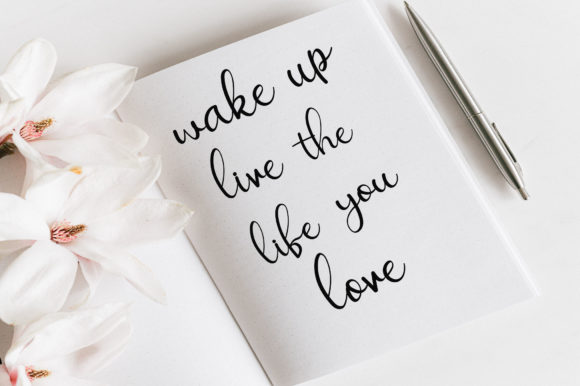 wake up
live the
life you
love